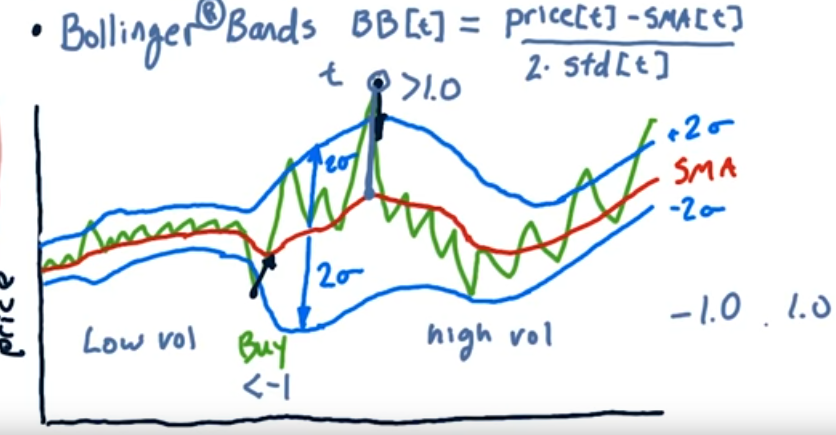 • Bollinger® Bands BB[t] = price[t] - SMA[t]
2. std[t]
t >1.0
2σ
+2σ
SMA
-2σ
2σ
price
Low vol
Buy
<-1
high vol
-1.0 . 1.0